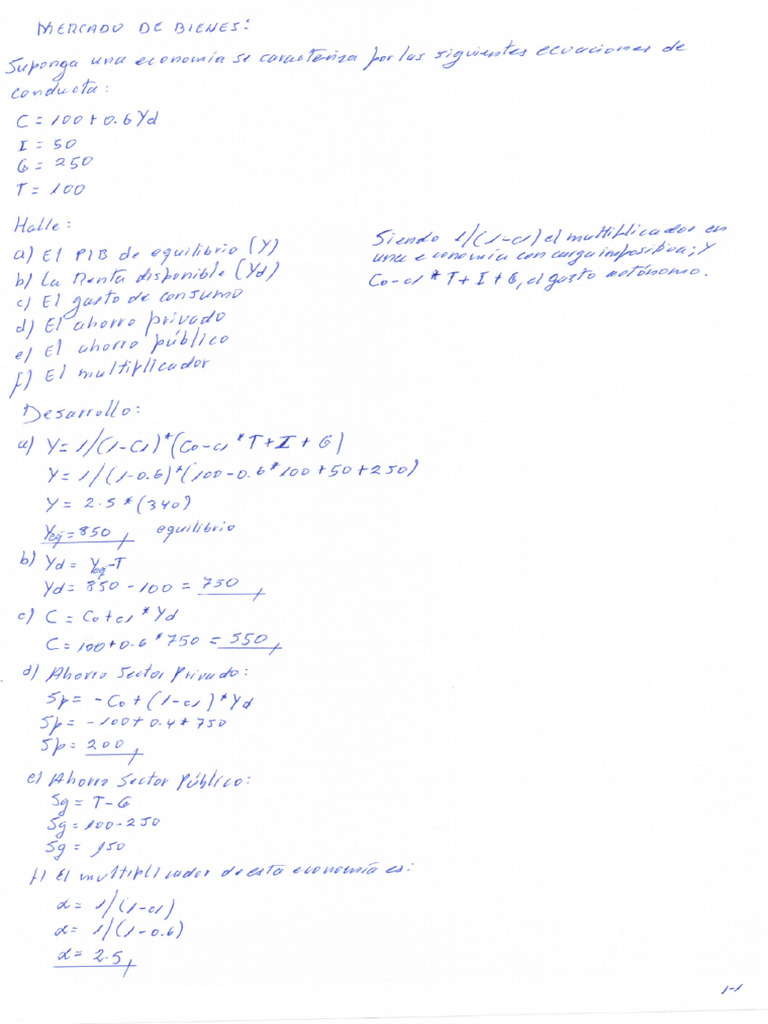 MERCADO DE BIENES:
Suponga una economía se caracteriza por las siguientes ecuaciones de
conducta:
C = 100+0.6Yd
I = 50
G = 250
T = 100
Halle:
a) El PIB de equilibrio (Y)
b) La Renta disponible (Yd)
c) El gasto de consumo
d) El ahorro privado
e) El ahorro público
f) El multiplicador
Siendo 1/(1-c1) el multiplicador en
una economía con carga impositiva; y
Co-c1*T+I+G, el gasto autónomo.
Desarrollo:
a) Y=1/(1-C1)*(Co-c1*T+I+G)
Y=1/(1-0.6)*(100-0.6*100+50+250)
Y= 2.5*(340)
Yeq=850, equilibrio
b) Yd= Yeq-T
Yd= 850-100 = 750,
c) C= Co+c1*Yd
C=100+0.6*750=550,
d) Ahorro Sector Privado:
Sp= -Co+(1-c1)*Yd
Sp= -100+0.4*750
Sp= 200,
e) Ahorro Sector Público:
Sg= T-G
Sg= 100-250
Sg= 150
f) El multiplicador de esta economía es:
α= 1/(1-c1)
α= 1/(1-0.6)
α= 2.5,
1-1